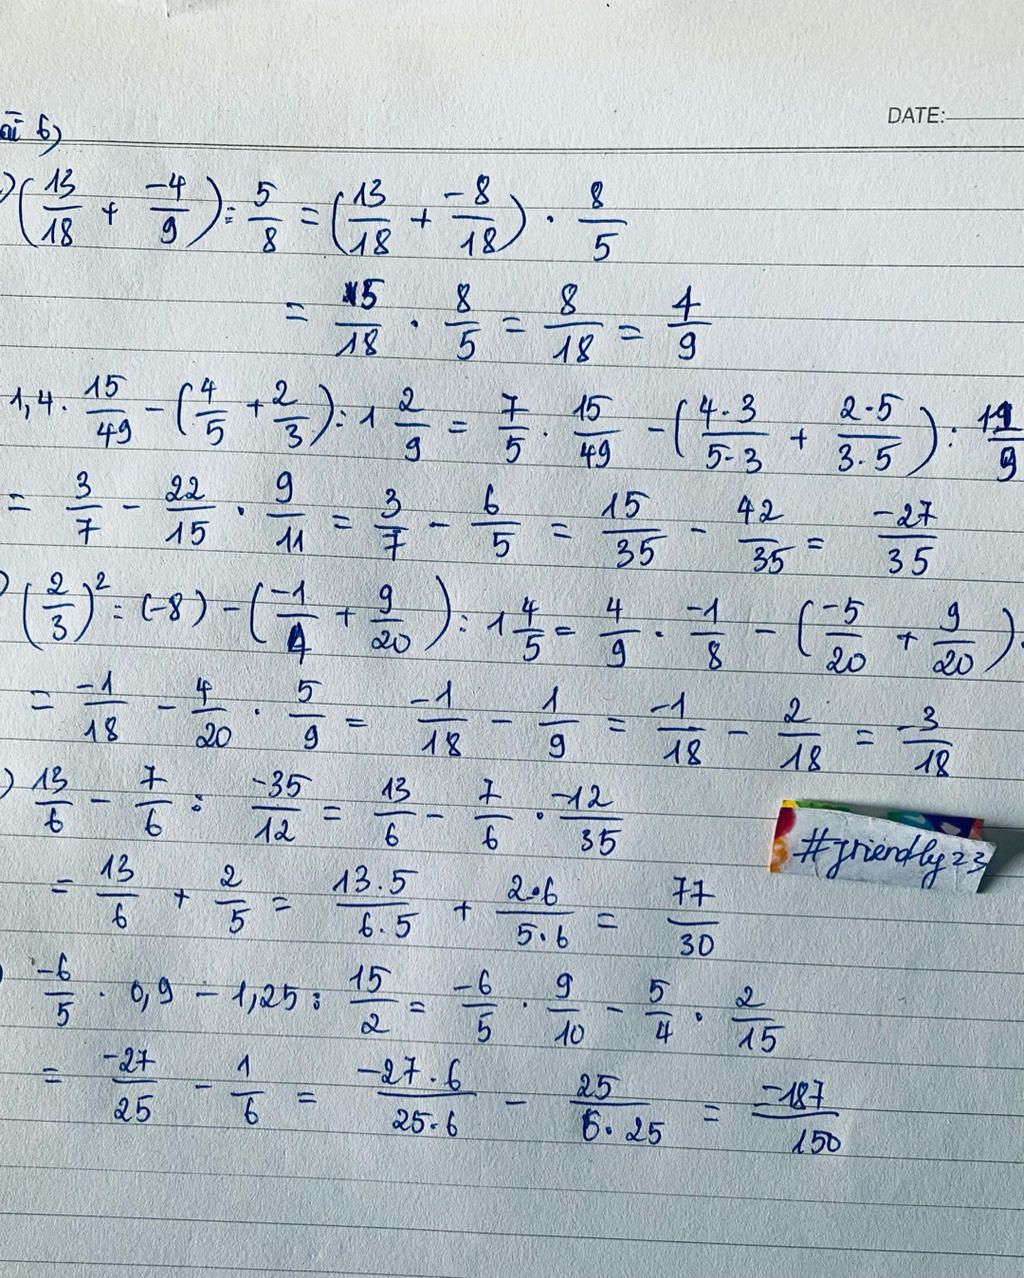 DATE:
ài 6)
) (13/18 + -4/9) : 5/8 = (13/18 + -8/18) . 8/5
= 5/18 . 8/5 = 8/18 = 4/9
1,4 . 15/49 - (4/5 + 2/3) : 1 2/9 = 7/5 . 15/49 - (4.3/5.3 + 2.5/3.5) : 11/9
= 3/7 - 22/15 . 9/11 = 3/7 - 6/5 = 15/35 - 42/35 = -27/35
) (2/3)² : (-8) - (-1/4 + 9/20) : 1 4/5 = 4/9 . -1/8 - (-5/20 + 9/20) .
= -1/18 - 4/20 . 5/9 = -1/18 - 1/9 = -1/18 - 2/18 = -3/18
) 13/6 - 7/6 : -35/12 = 13/6 - 7/6 . -12/35
#friendly23
= 13/6 + 2/5 = 13.5/6.5 + 2.6/5.6 = 77/30
) -6/5 . 0,9 - 1,25 : 15/2 = -6/5 . 9/10 - 5/4 . 2/15
= -27/25 - 1/6 = -27.6/25.6 - 25/6.25 = -187/150